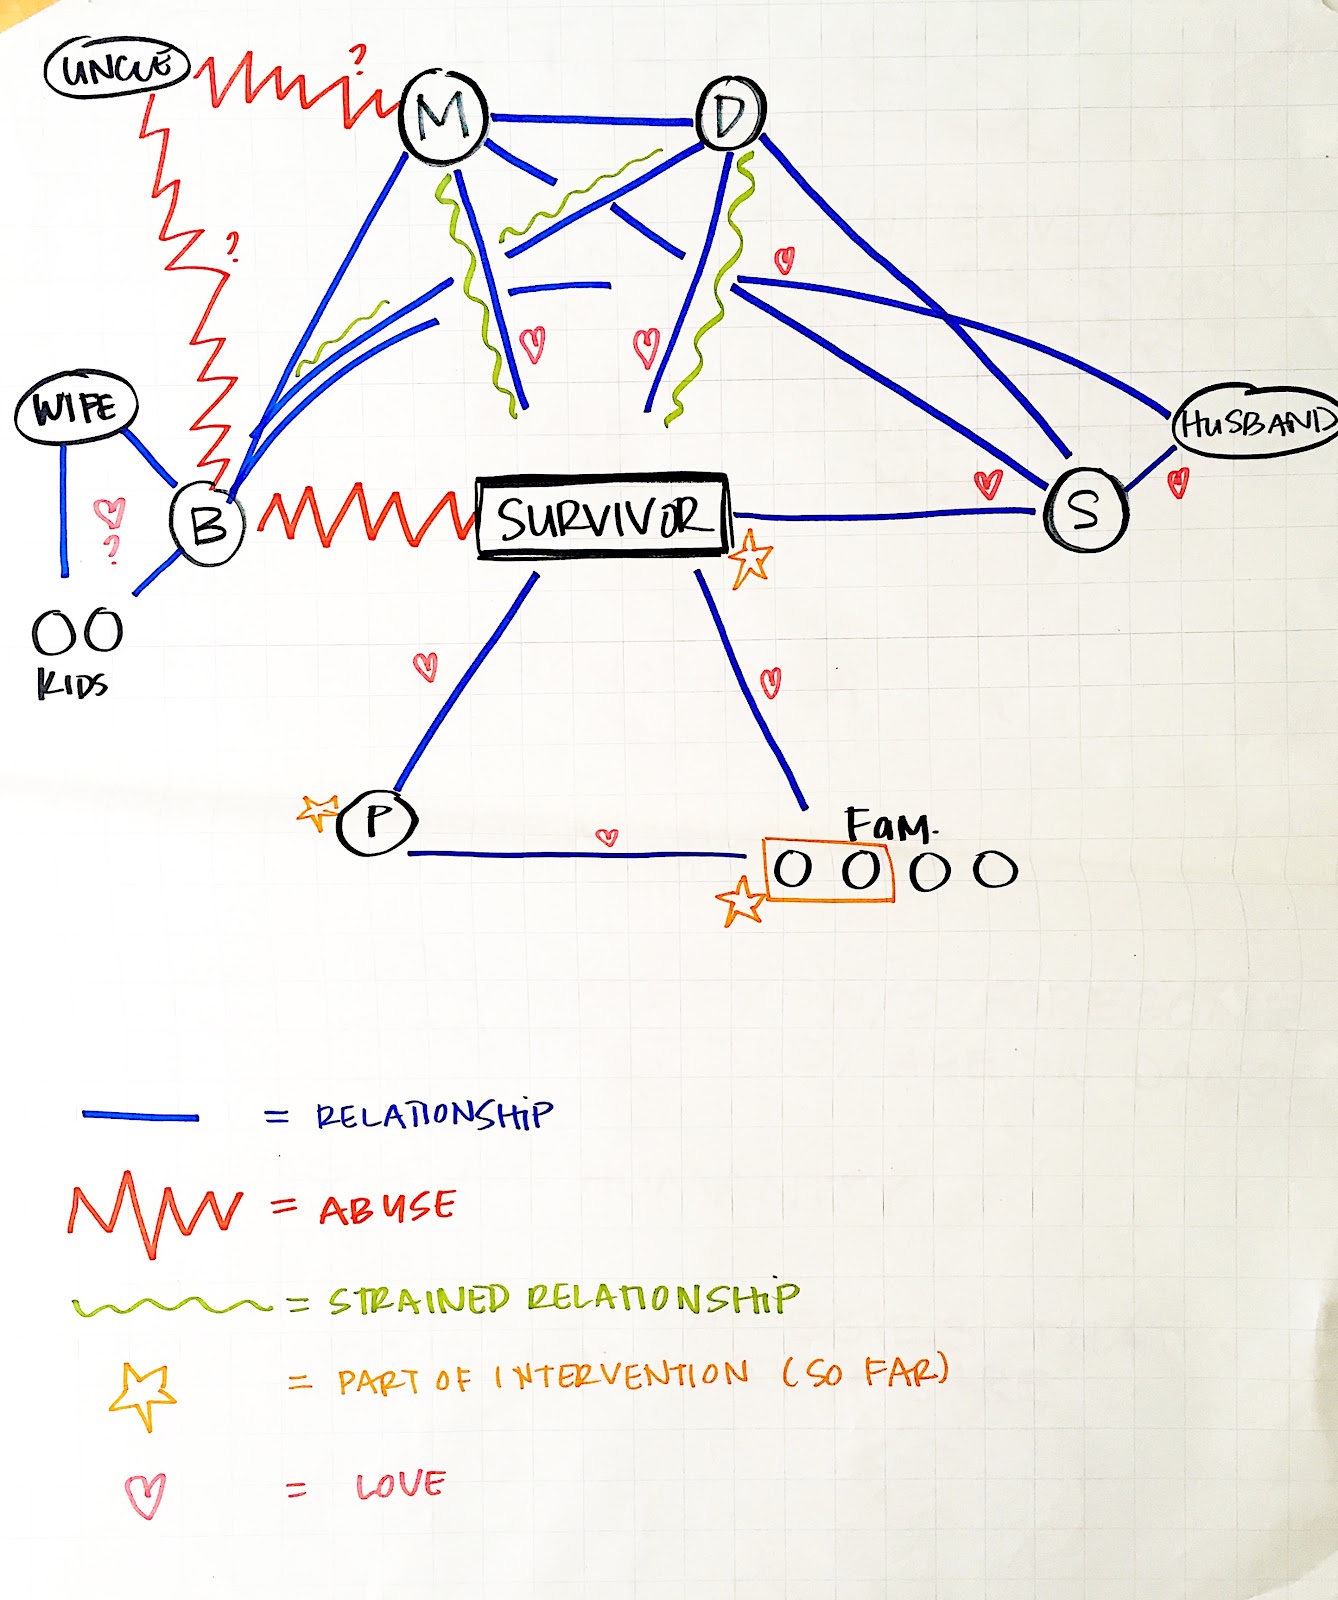 UNCLE
?
M
D
?
WIFE
HUSBAND
B
SURVIVOR
S
?
KIDS
P
FAM.
= RELATIONSHIP
= ABUSE
= STRAINED RELATIONSHIP
= PART OF INTERVENTION (SO FAR)
= LOVE